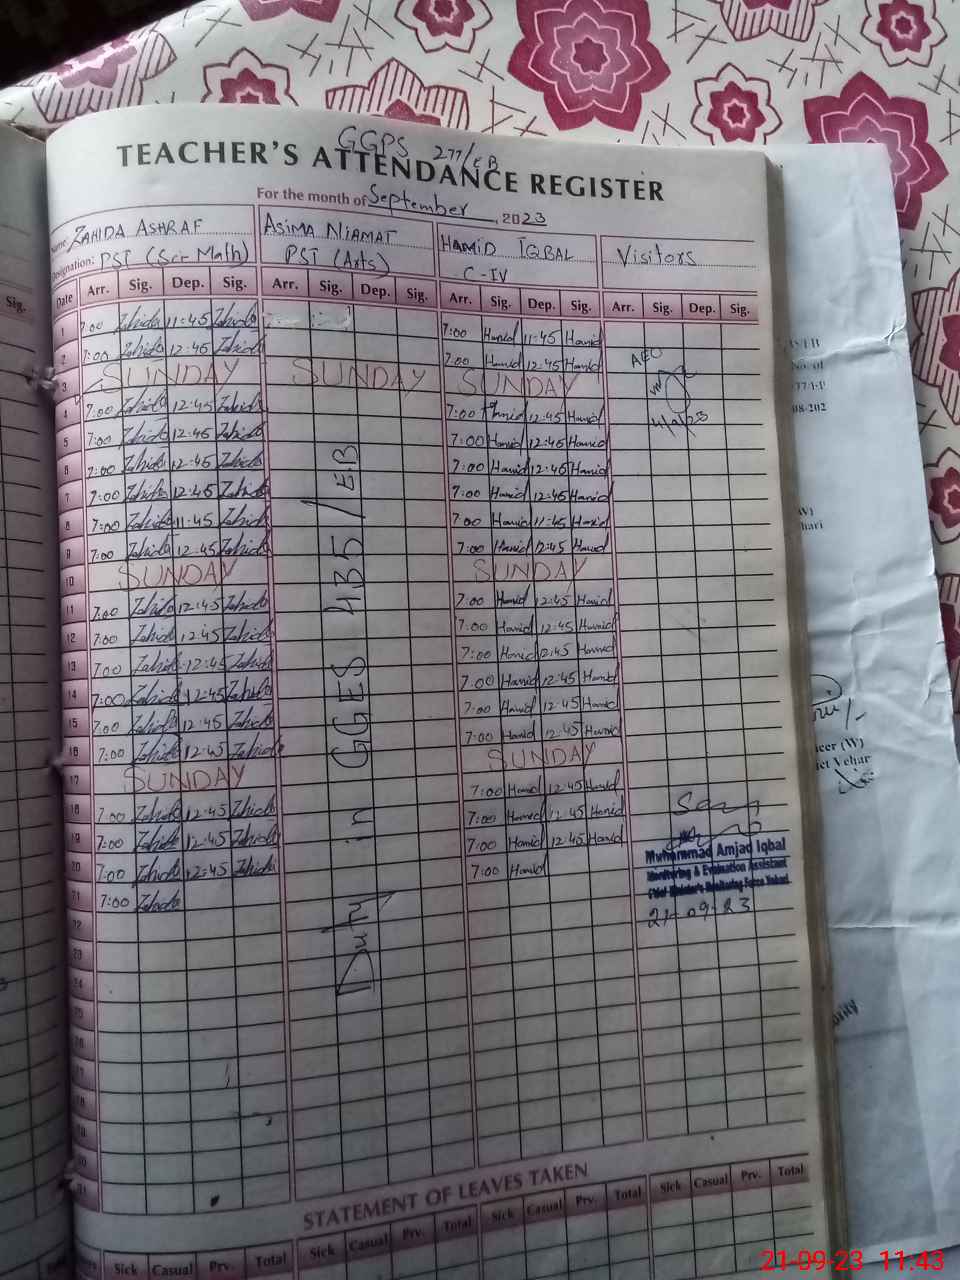 GGPS 277/EB
TEACHER'S ATTENDANCE REGISTER
For the month of September, 2023
Name: ZAHIDA ASHRAF ASIMA NIAMAT HAMID IQBAL Visitors
Designation: PST (Sci-Math) PST (Arts) C-IV
Sig. Date Arr. Sig. Dep. Sig. Arr. Sig. Dep. Sig. Arr. Sig. Dep. Sig. Arr. Sig. Dep. Sig.
1 7:00 Zahida 11:45 Zahida 7:00 Hamid 11:45 Hamid
2 7:00 Zahida 12:45 Zahida 7:00 Hamid 12:45 Hamid AEO
3 SUNDAY SUNDAY SUNDAY
4 7:00 Zahida 12:45 Zahida 7:00 Hamid 12:45 Hamid 4/9/23
5 7:00 Zahida 12:45 Zahida 7:00 Hamid 12:45 Hamid
6 7:00 Zahida 12:45 Zahida 7:00 Hamid 12:45 Hamid
7 7:00 Zahida 12:45 Zahida 7:00 Hamid 12:45 Hamid
8 7:00 Zahida 11:45 Zahida 7:00 Hamid 11:45 Hamid
9 7:00 Zahida 12:45 Zahida 7:00 Hamid 12:45 Hamid
10 SUNDAY SUNDAY
11 7:00 Zahida 12:45 Zahida 7:00 Hamid 12:45 Hamid
12 7:00 Zahida 12:45 Zahida 7:00 Hamid 12:45 Hamid
13 7:00 Zahida 12:45 Zahida 7:00 Hamid 12:45 Hamid
14 7:00 Zahida 12:45 Zahida 7:00 Hamid 12:45 Hamid
15 7:00 Zahida 12:45 Zahida 7:00 Hamid 12:45 Hamid
16 7:00 Zahida 12:45 Zahida 7:00 Hamid 12:45 Hamid
17 SUNDAY SUNDAY
18 7:00 Zahida 12:45 Zahida 7:00 Hamid 12:45 Hamid
19 7:00 Zahida 12:45 Zahida 7:00 Hamid 12:45 Hamid
20 7:00 Zahida 12:45 Zahida 7:00 Hamid 12:45 Hamid
21 7:00 Zahida 7:00 Hamid
Duty in GGES 435/EB
Muhammad Amjad Iqbal
Monitoring & Evaluation Assistant
Chief Minister's Monitoring Force Vehari
21-09-23
22
23
24
STATEMENT OF LEAVES TAKEN
Sick Casual Prv. Total Sick Casual Prv. Total Sick Casual Prv. Total Sick Casual Prv. Total
21-09-23 11:43